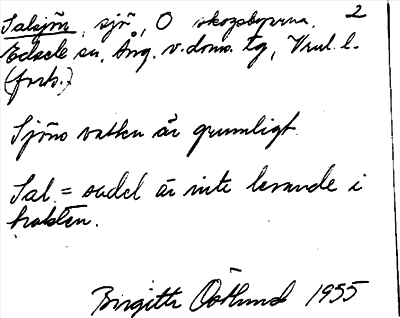 Salsjön, sjö, O skogsbyarna, 2
Edsele sn, Ång. v. doms. tg, Vrul. l.
(forts.)
Sjöns vatten är grumligt.
Sal = sadel är inte levande i
trakten.
Birgitta Östlund 1955